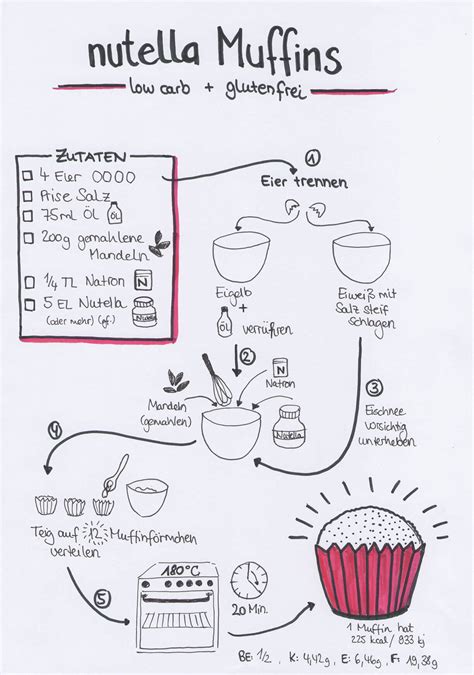 nutella Muffins
low carb + glutenfrei
ZUTATEN
4 Eier
Prise Salz
75ml Öl
ÖL
200g gemahlene
Mandeln
1/4 TL Natron
N
5 EL Nutella
(oder mehr)
Nutella
1
Eier trennen
Eigelb
+
ÖL
verrühren
Eiweiß mit
Salz steif
schlagen
2
N
Natron
Mandeln
(gemahlen)
Nutella
3
Eischnee
vorsichtig
unterheben
4
Teig auf 12 Muffinförmchen
verteilen
5
180°C
20 Min.
1 Muffin hat
225 kcal / 933 kj
BE: 1/2, K: 4,42g, E: 6,46g, F: 19,38g